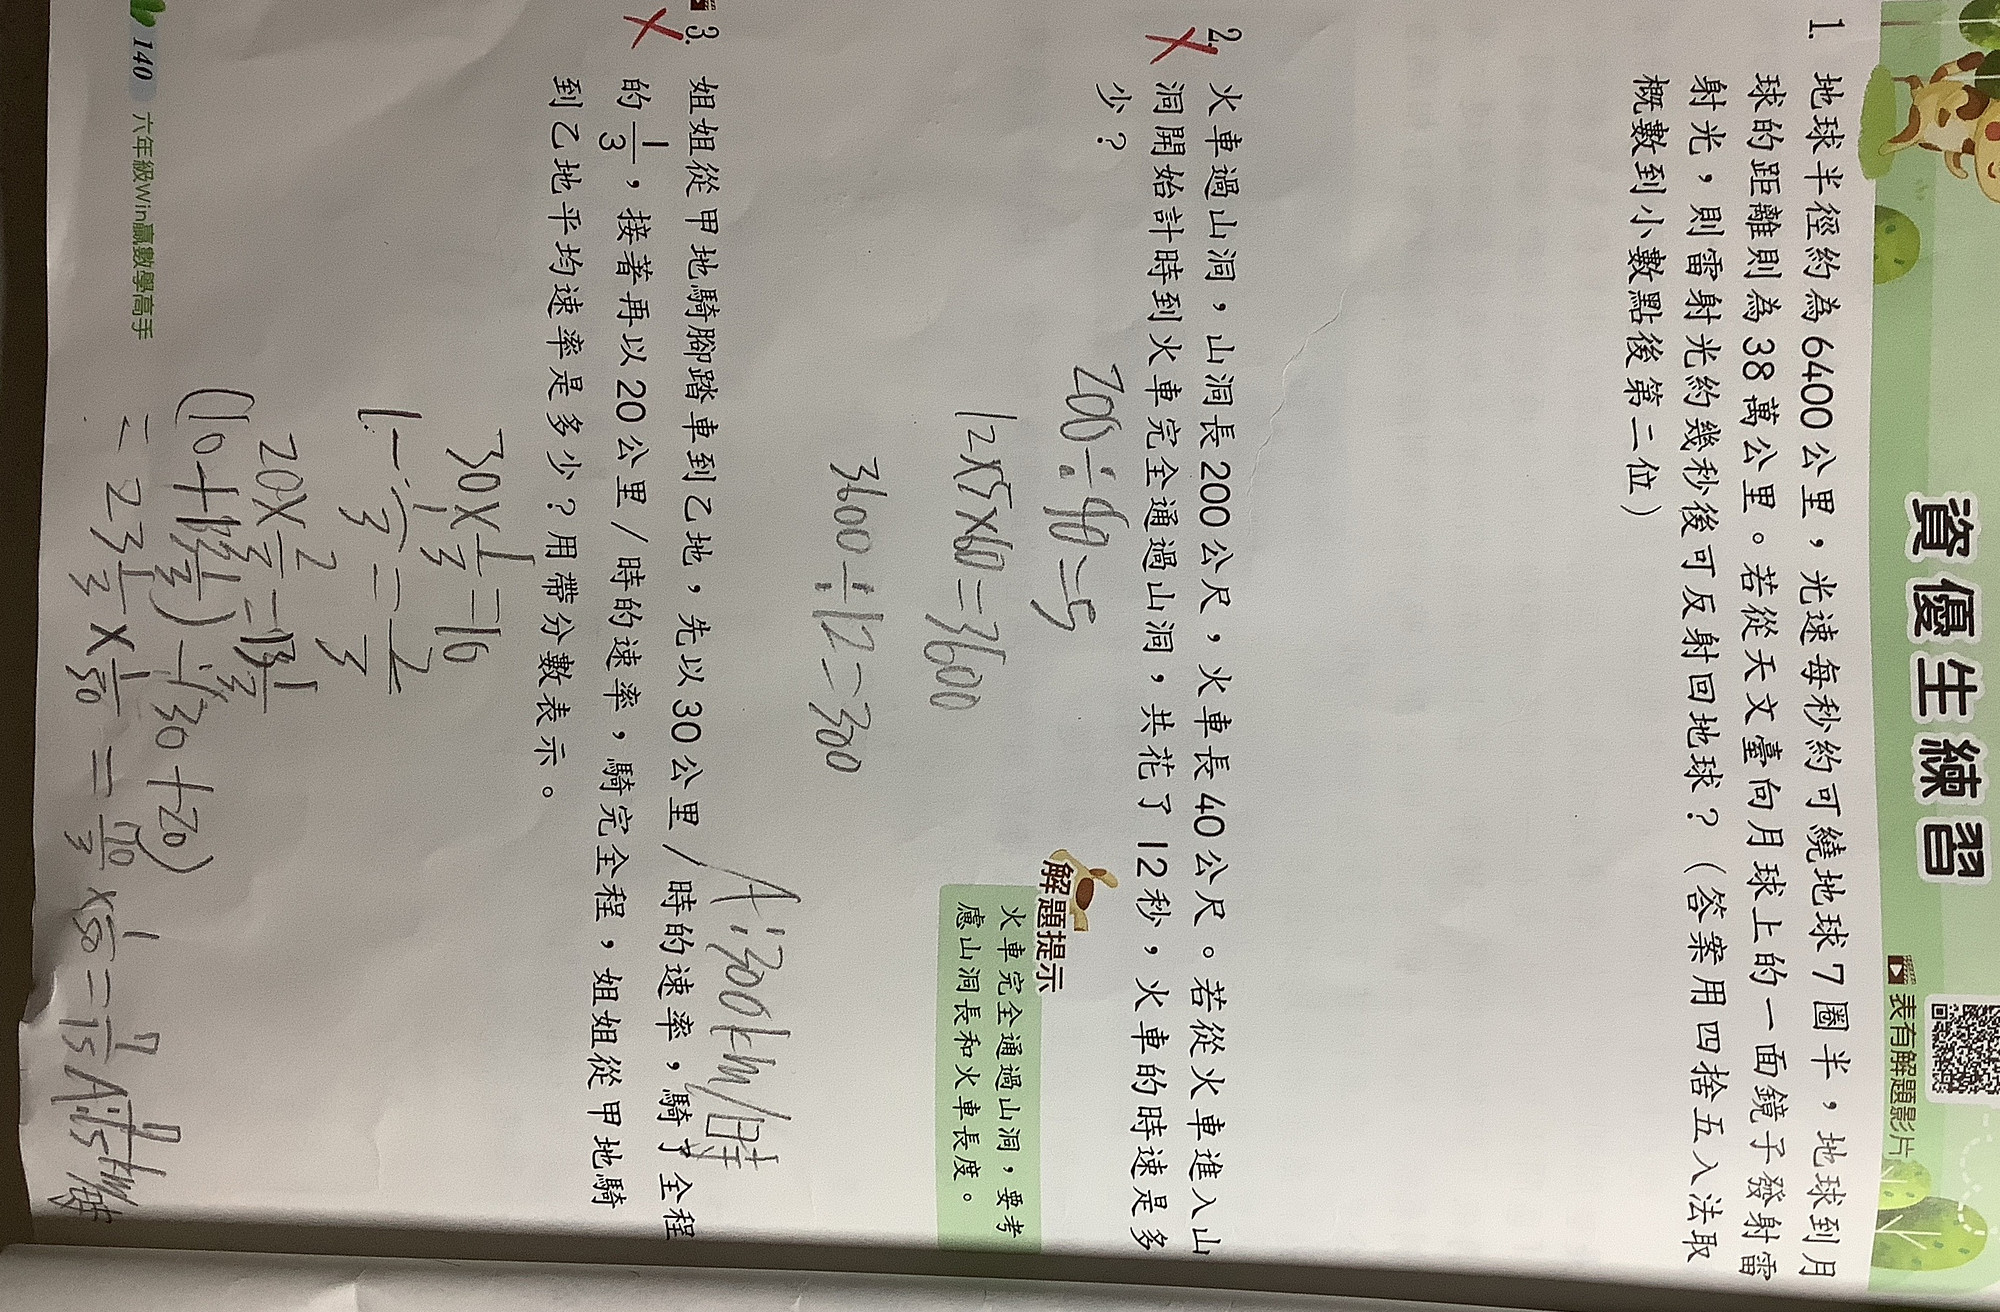 資優生練習
表有解題影片
1. 地球半徑約為6400公里，光速每秒約可繞地球7圈半，地球到月
球的距離則為38萬公里。若從天文臺向月球上的一面鏡子發射雷
射光，則雷射光約幾秒後可反射回地球？（答案用四捨五入法取
概數到小數點後第二位）
2. 火車過山洞，山洞長200公尺，火車長40公尺。若從火車進入山
洞開始計時到火車完全通過山洞，共花了12秒，火車的時速是多
少？
解題提示
火車完全通過山洞，要考
慮山洞長和火車長度。
200÷40=5
12×5×60=3600
3600÷12=300
A:300km/時
3. 姐姐從甲地騎腳踏車到乙地，先以30公里/時的速率，騎了全程
的1/3，接著再以20公里/時的速率，騎完全程，姐姐從甲地騎
到乙地平均速率是多少？用帶分數表示。
30×1/3=10
1-1/3=2/3
20×2/3=13 1/3
(10+13 1/3)÷(30+20)
=23 1/3×1/50=70/3×1/50=7/15 A:7/15km/時
140 六年級Win贏數學高手